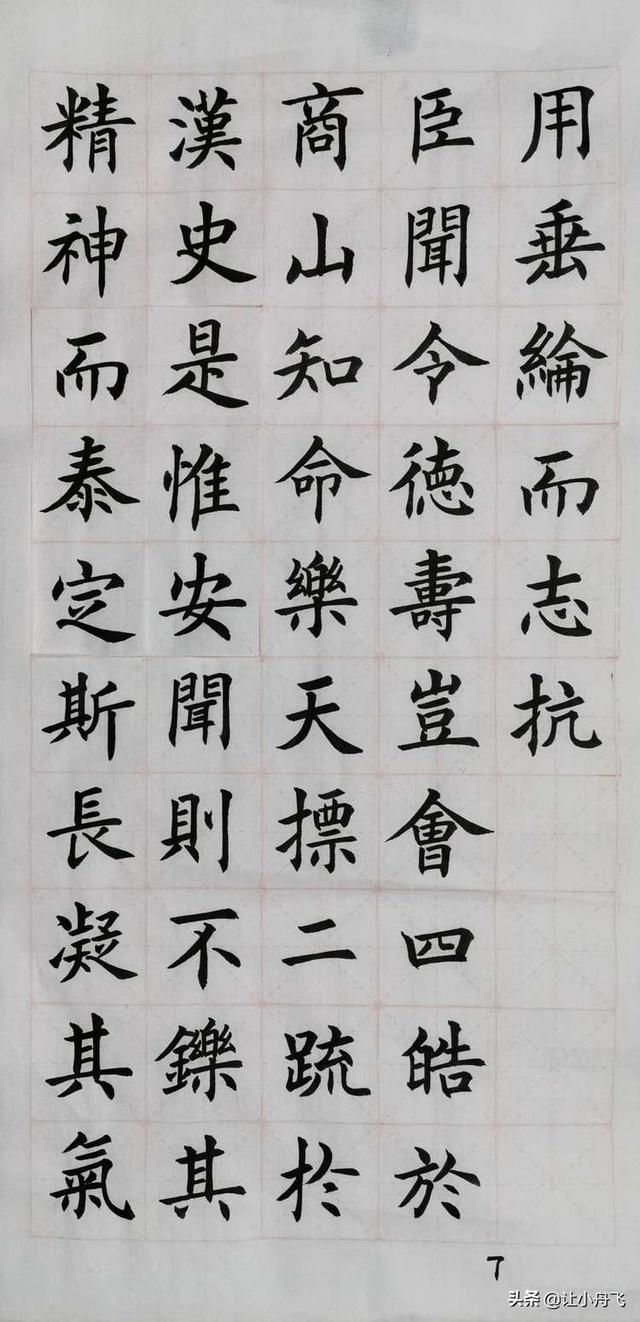 用垂綸而志抗
臣聞令德壽豈會四皓於
商山知命樂天摽二踈扵
漢史是惟安聞則不鑠其
精神而泰定斯長凝其氣
7
头条 @让小舟飞